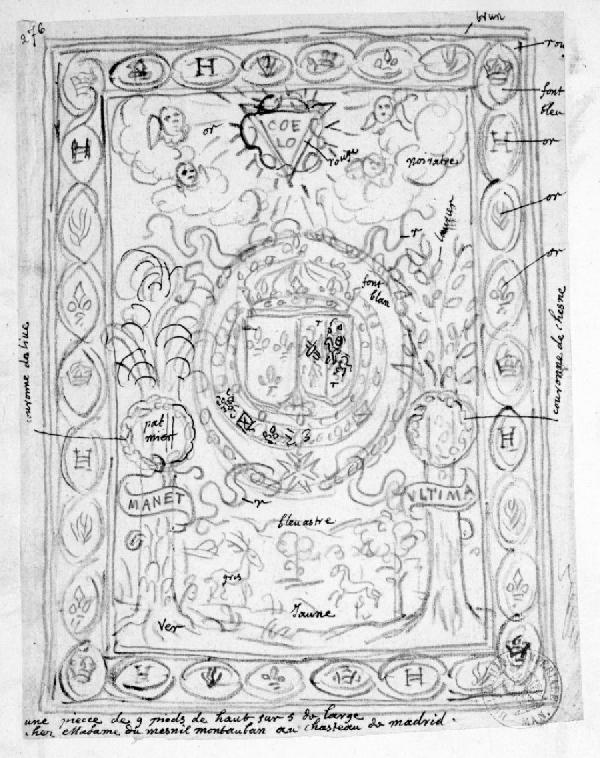 276
brun
rou
font
bleu
H
H
or
or
or
COE
LO
rouge
or
noiratre
r
laurier
font
blan
couronne de chesne
pal
mier
MANET
VLTIMA
r
bleuastre
gris
Jaune
Ver
H
H
H
H
H
une piece de 9 pieds de haut sur 5 de large
cher Madame du mesnil montauban au chasteau de madrid.